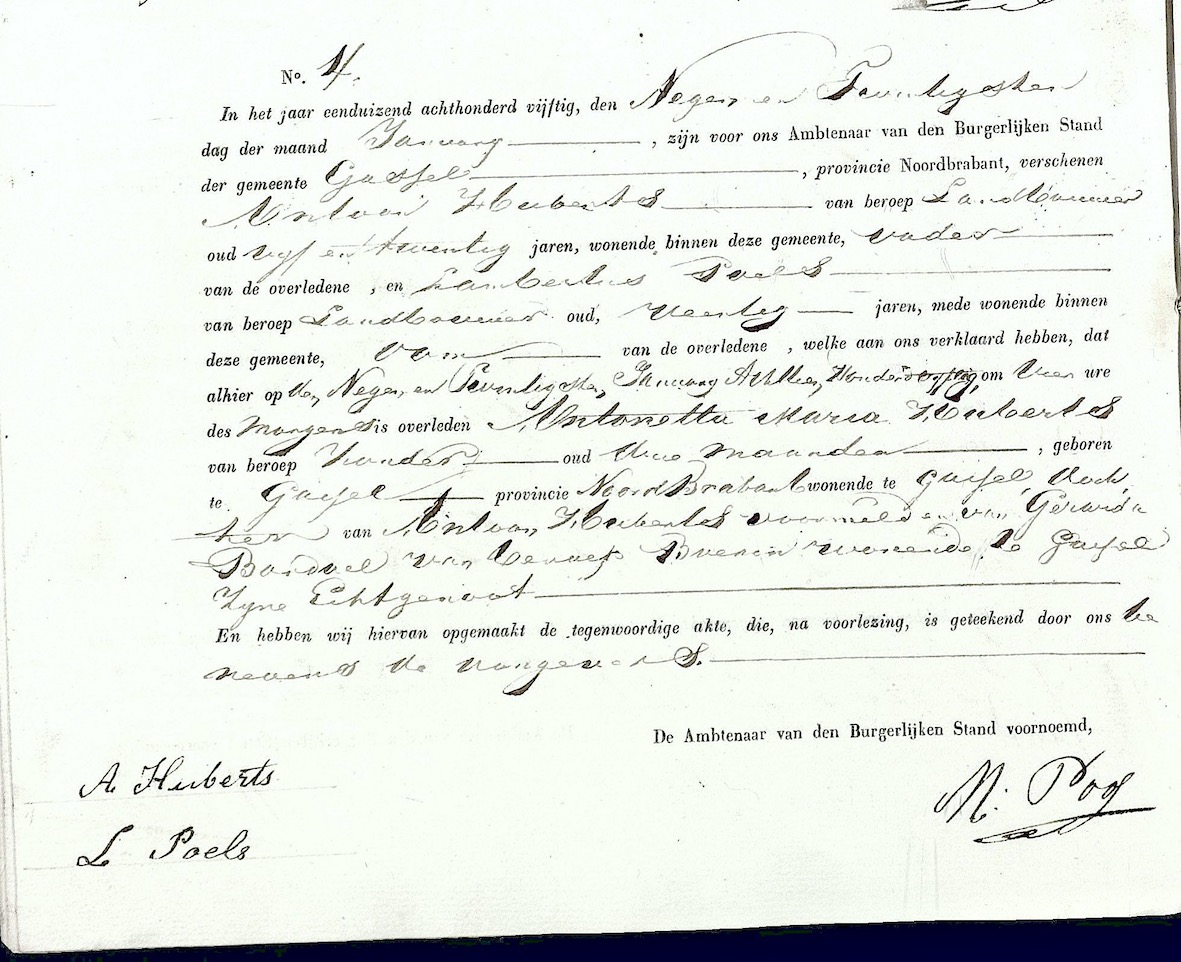 No. 4.
In het jaar eenduizend achthonderd vijftig, den Negen en Twentigsten
dag der maand January, zijn voor ons Ambtenaar van den Burgerlijken Stand
der gemeente Gassel, provincie Noordbrabant, verschenen
Antoon Huberts van beroep Landbouwer
oud vyf en twentig jaren, wonende binnen deze gemeente, vader
van de overledene , en Lambertus Poels
van beroep Landbouwer oud, Veertig jaren, mede wonende binnen
deze gemeente, oom van de overledene , welke aan ons verklaard hebben, dat
alhier op den Negen en Twentigsten January Achtien Honderd vyftig om vier ure
des Morgens is overleden Antonetta Maria Huberts
van beroep Zonder oud drie maanden, geboren
te Gassel provincie Noord Brabant wonende te Gassel, doch
ter van Antoon Huberts voormeld en van Gerarda
Bardoel van beroep Boerin wonende te Gassel
Zyne Echtgenoot
En hebben wij hiervan opgemaakt de tegenwoordige akte, die, na voorlezing, is geteekend door ons be
nevens de aangevers.
De Ambtenaar van den Burgerlijken Stand voornoemd,
A Huberts
M:
L Poels